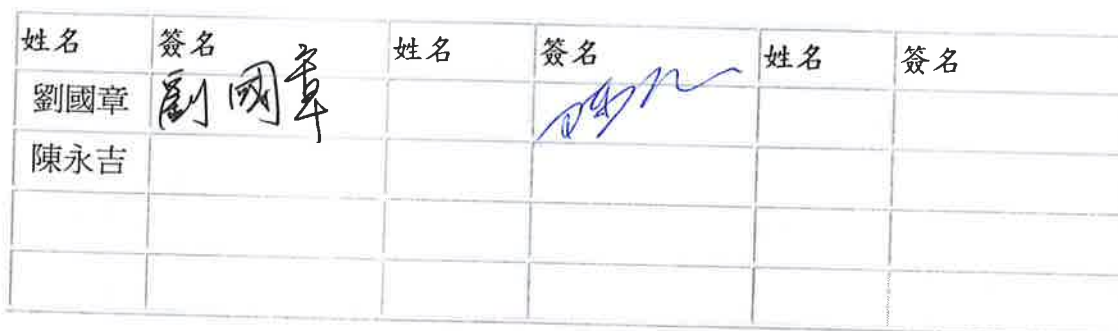 姓名 簽名 姓名 簽名 姓名 簽名
劉國章 劉國章
陳永吉